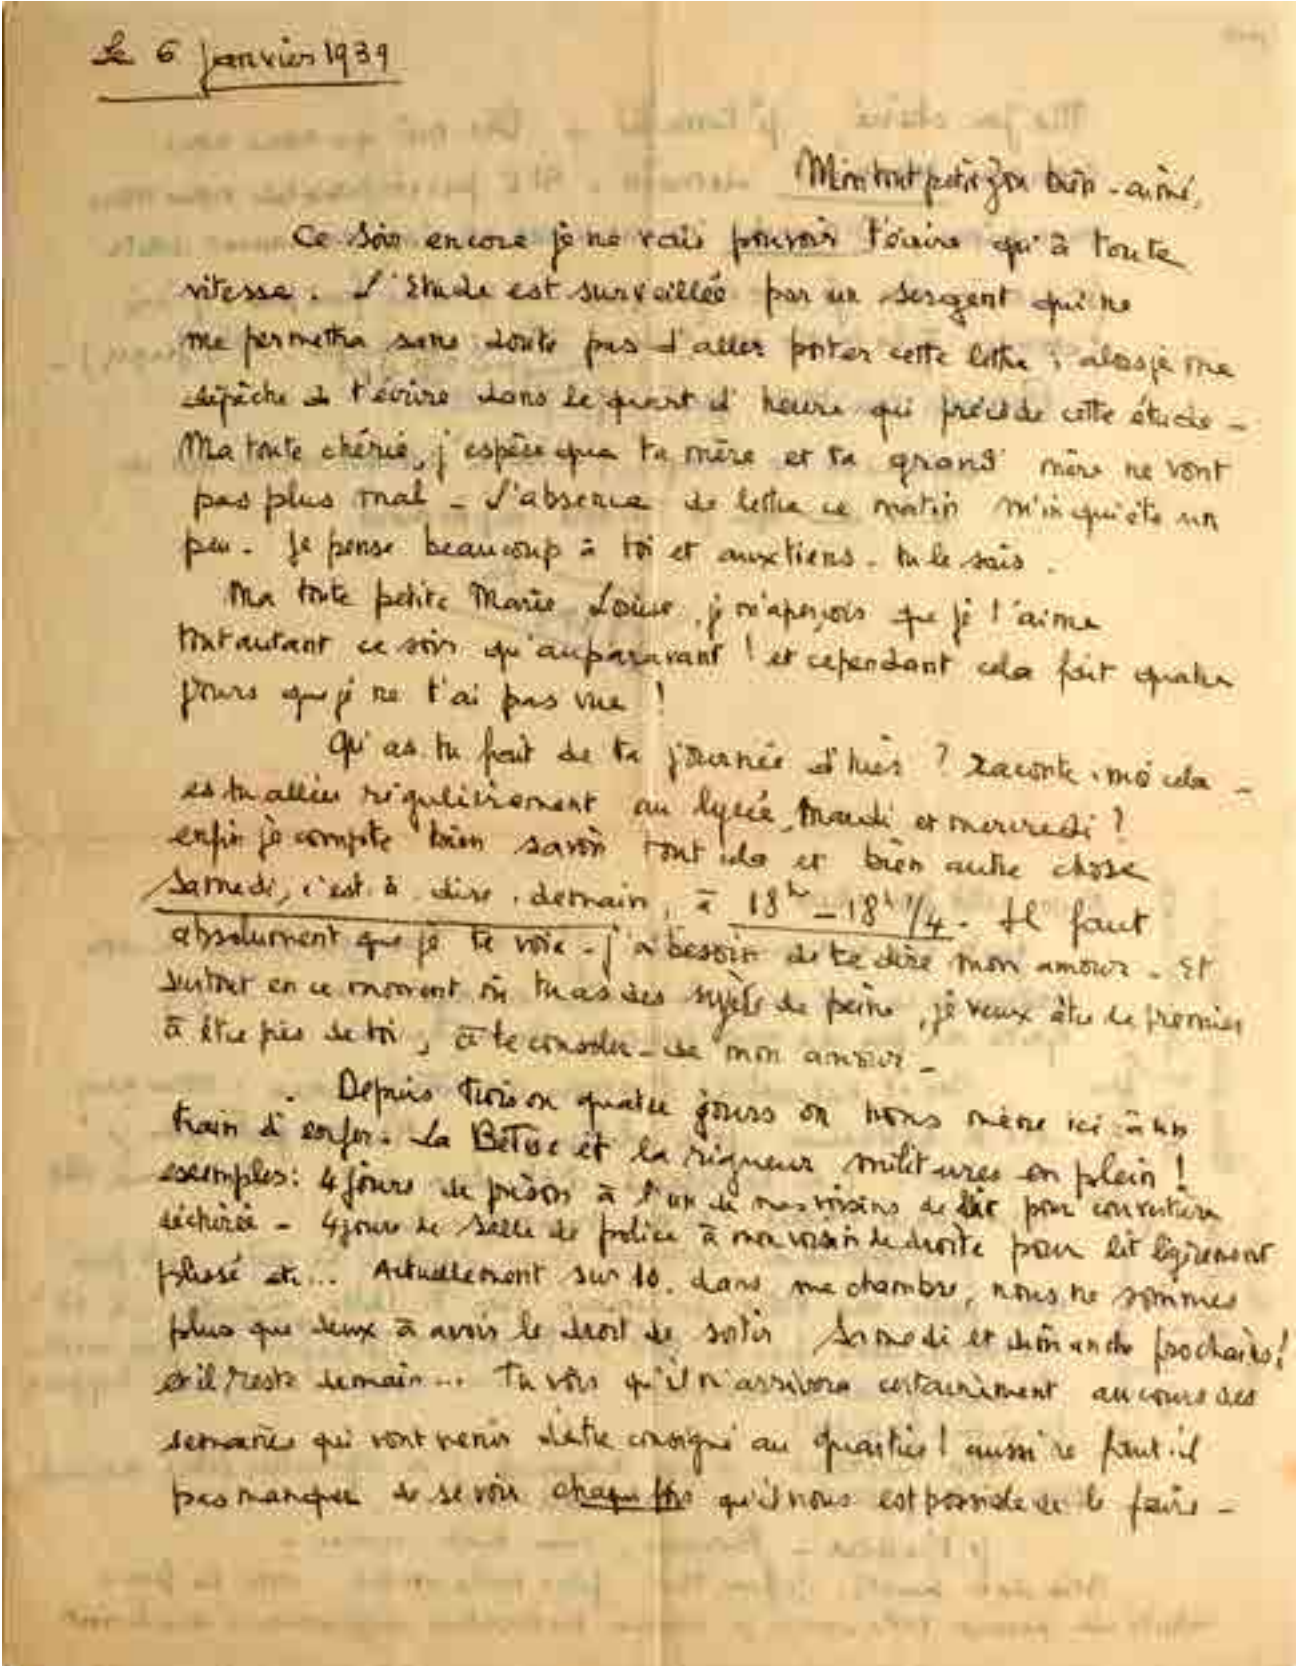 Le 6 janvier 1939
Mon tout petit bien-aimé,
Ce soir encore je ne vais pouvoir t'écrire qu'à toute
vitesse. L'étude est surveillée par un sergent qui ne
me permettra sans doute pas d'aller porter cette lettre ; alors je me
dépêche de t'écrire dans le quart d'heure qui précède cette étude -
Ma toute chérie, j'espère que ta mère et ta grand' mère ne vont
pas plus mal - L'absence de lettre ce matin m'inquiète un
peu. Je pense beaucoup à toi et aux tiens. tu le sais.
Ma toute petite Marie Louise, je m'aperçois que je t'aime
tout autant ce soir qu'auparavant ! et cependant cela fait quatre
jours que je ne t'ai pas vue !
Qu'as-tu fait de ta journée d'hier ? raconte-moi cela -
es-tu allée régulièrement au lycée, mardi et mercredi ?
enfin je compte bien savoir tout cela et bien autre chose
Samedi, c'est-à-dire demain, à 18h - 18h 1/4. Il faut
absolument que je te voie - j'ai besoin de te dire mon amour - Et
surtout en ce moment où tu as des sujets de peine, je veux être le premier
à être près de toi, à te consoler de mon amour -
Depuis trois ou quatre jours on nous mène ici à un
train d'enfer. La Bêtise et la rigueur militaires en plein !
exemples : 4 jours de prison à l'un de mes voisins de lit pour couverture
déchirée - 4 jours de salle de police à mon voisin de droite pour lit légèrement
plissé etc... Actuellement sur 10. dans ma chambre, nous ne sommes
plus que deux à avoir le droit de sortir Samedi et dimanche prochains !
et il reste demain... Tu vois qu'il m'arrivera certainement au cours des
semaines qui vont venir d'être consigné au quartier ! aussi ne faut-il
pas manquer de se voir chaque fois qu'il nous est possible de le faire -